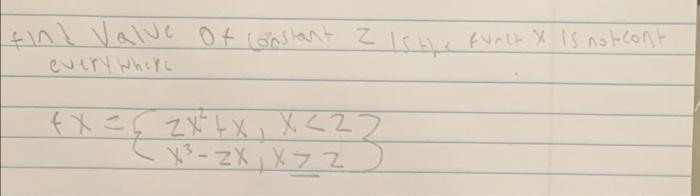 find Value Of constant Z is the funct X is not cont
everywhere
fX = { ZX² + X, X < 2 }
X³ - ZX, X ≥ 2